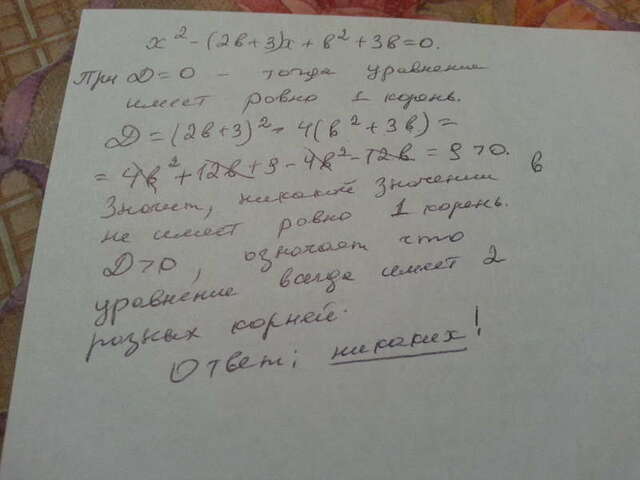 x² - (2в+3)x + в² + 3в = 0.
При D = 0 - тогда уравнение
имеет ровно 1 корень.
D = (2в+3)² - 4(в² + 3в) =
= 4в² + 12в + 9 - 4в² - 12в = 9 > 0.
Значит, никакие значении в
не имеет ровно 1 корень.
D > 0, означает что
уравнение всегда имеет 2
разных корней.
Ответ: никаких!